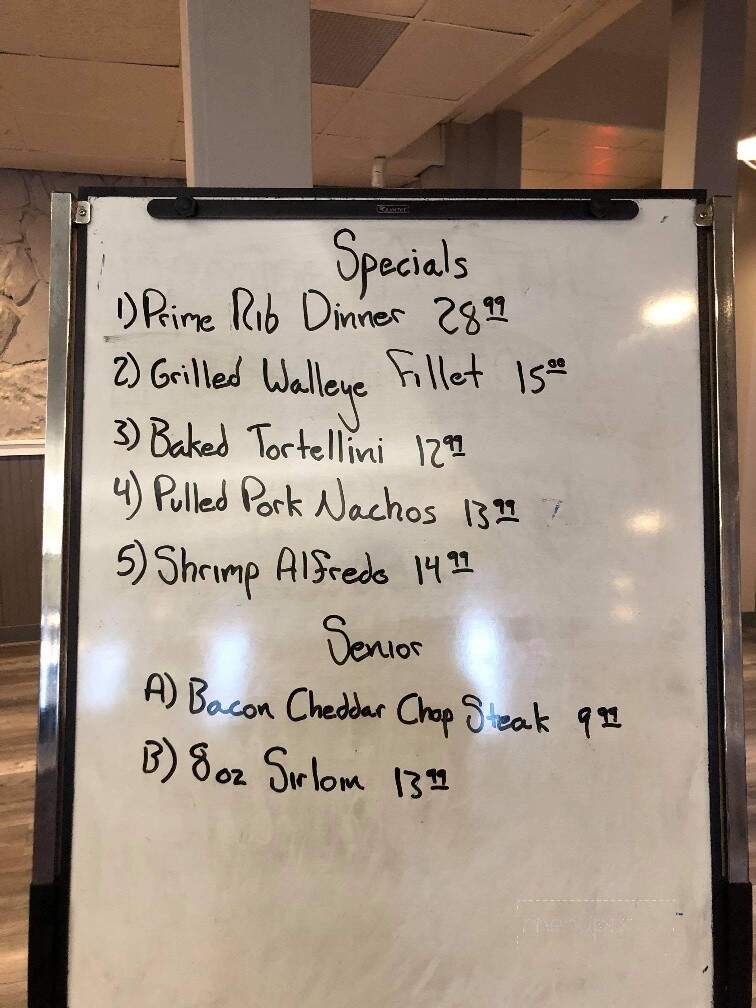 QUARTET
Specials
1) Prime Rib Dinner 28 99
2) Grilled Walleye Fillet 15 00
3) Baked Tortellini 12 99
4) Pulled Pork Nachos 13 99
5) Shrimp Alfredo 14 99
Senior
A) Bacon Cheddar Chop Steak 9 99
B) 8 oz Sirloin 13 99
menupix